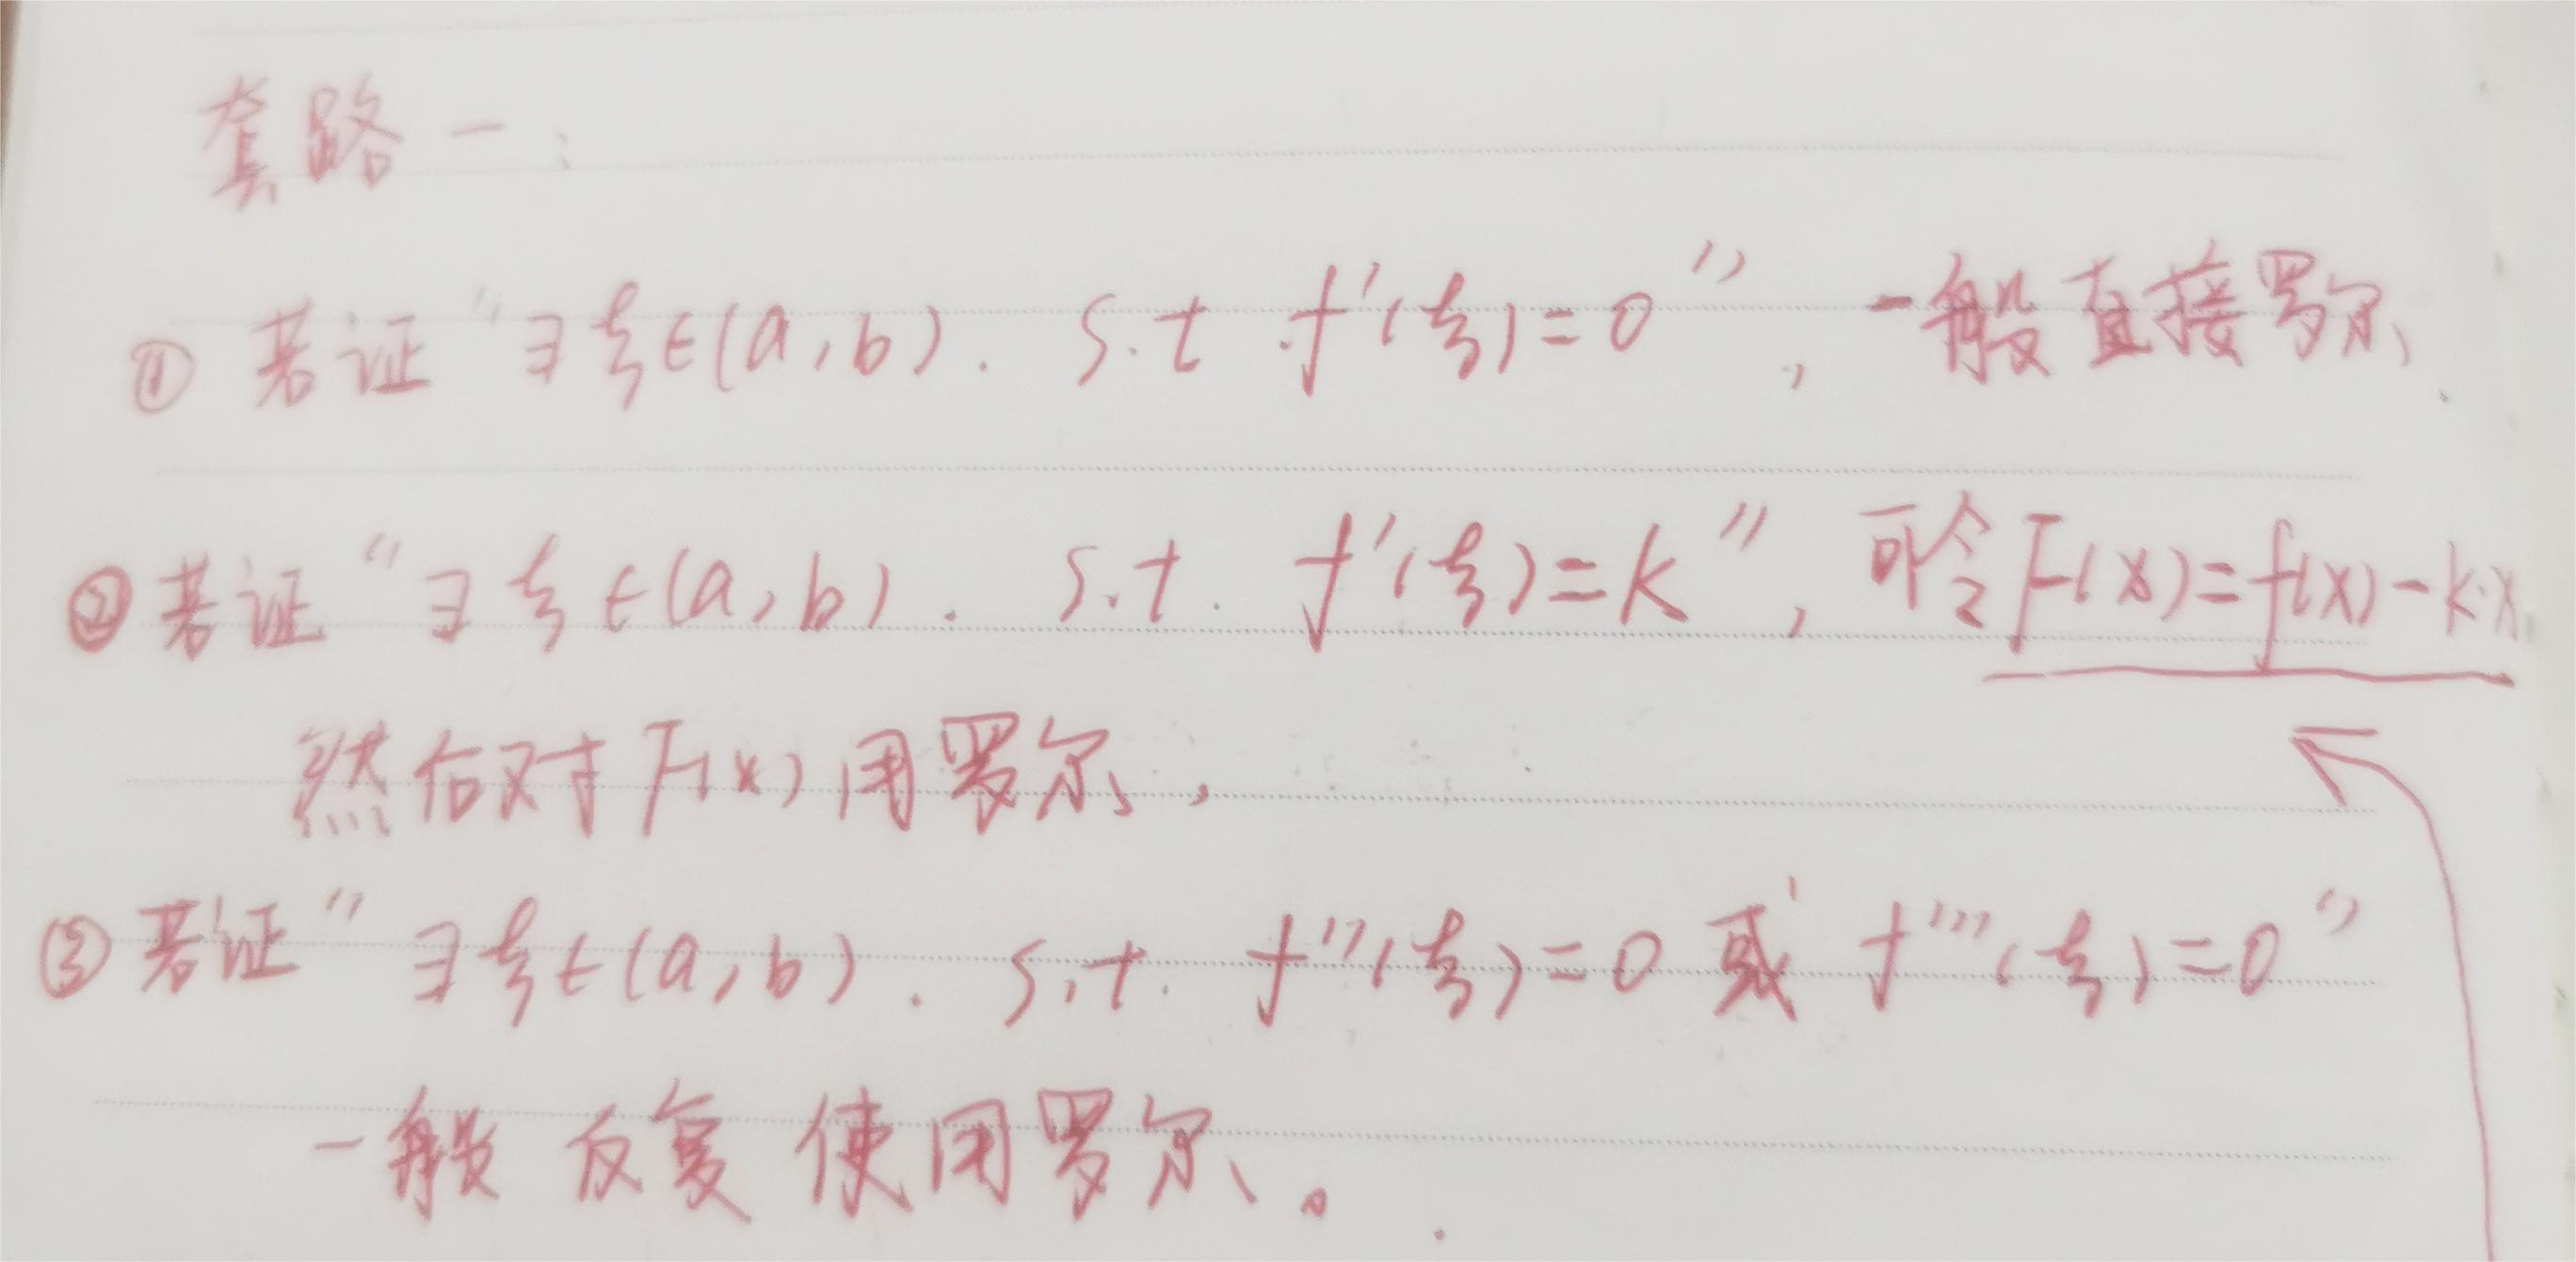 套路一：
① 若证"∃ξ∈(a,b). s.t f'(ξ)=0", 一般直接罗尔.
② 若证"∃ξ∈(a,b). s.t. f'(ξ)=k", 可令F(x)=f(x)-k·x,
然后对F(x)用罗尔,
③ 若证"∃ξ∈(a,b). s.t. f''(ξ)=0 或 f'''(ξ)=0"
一般反复使用罗尔。